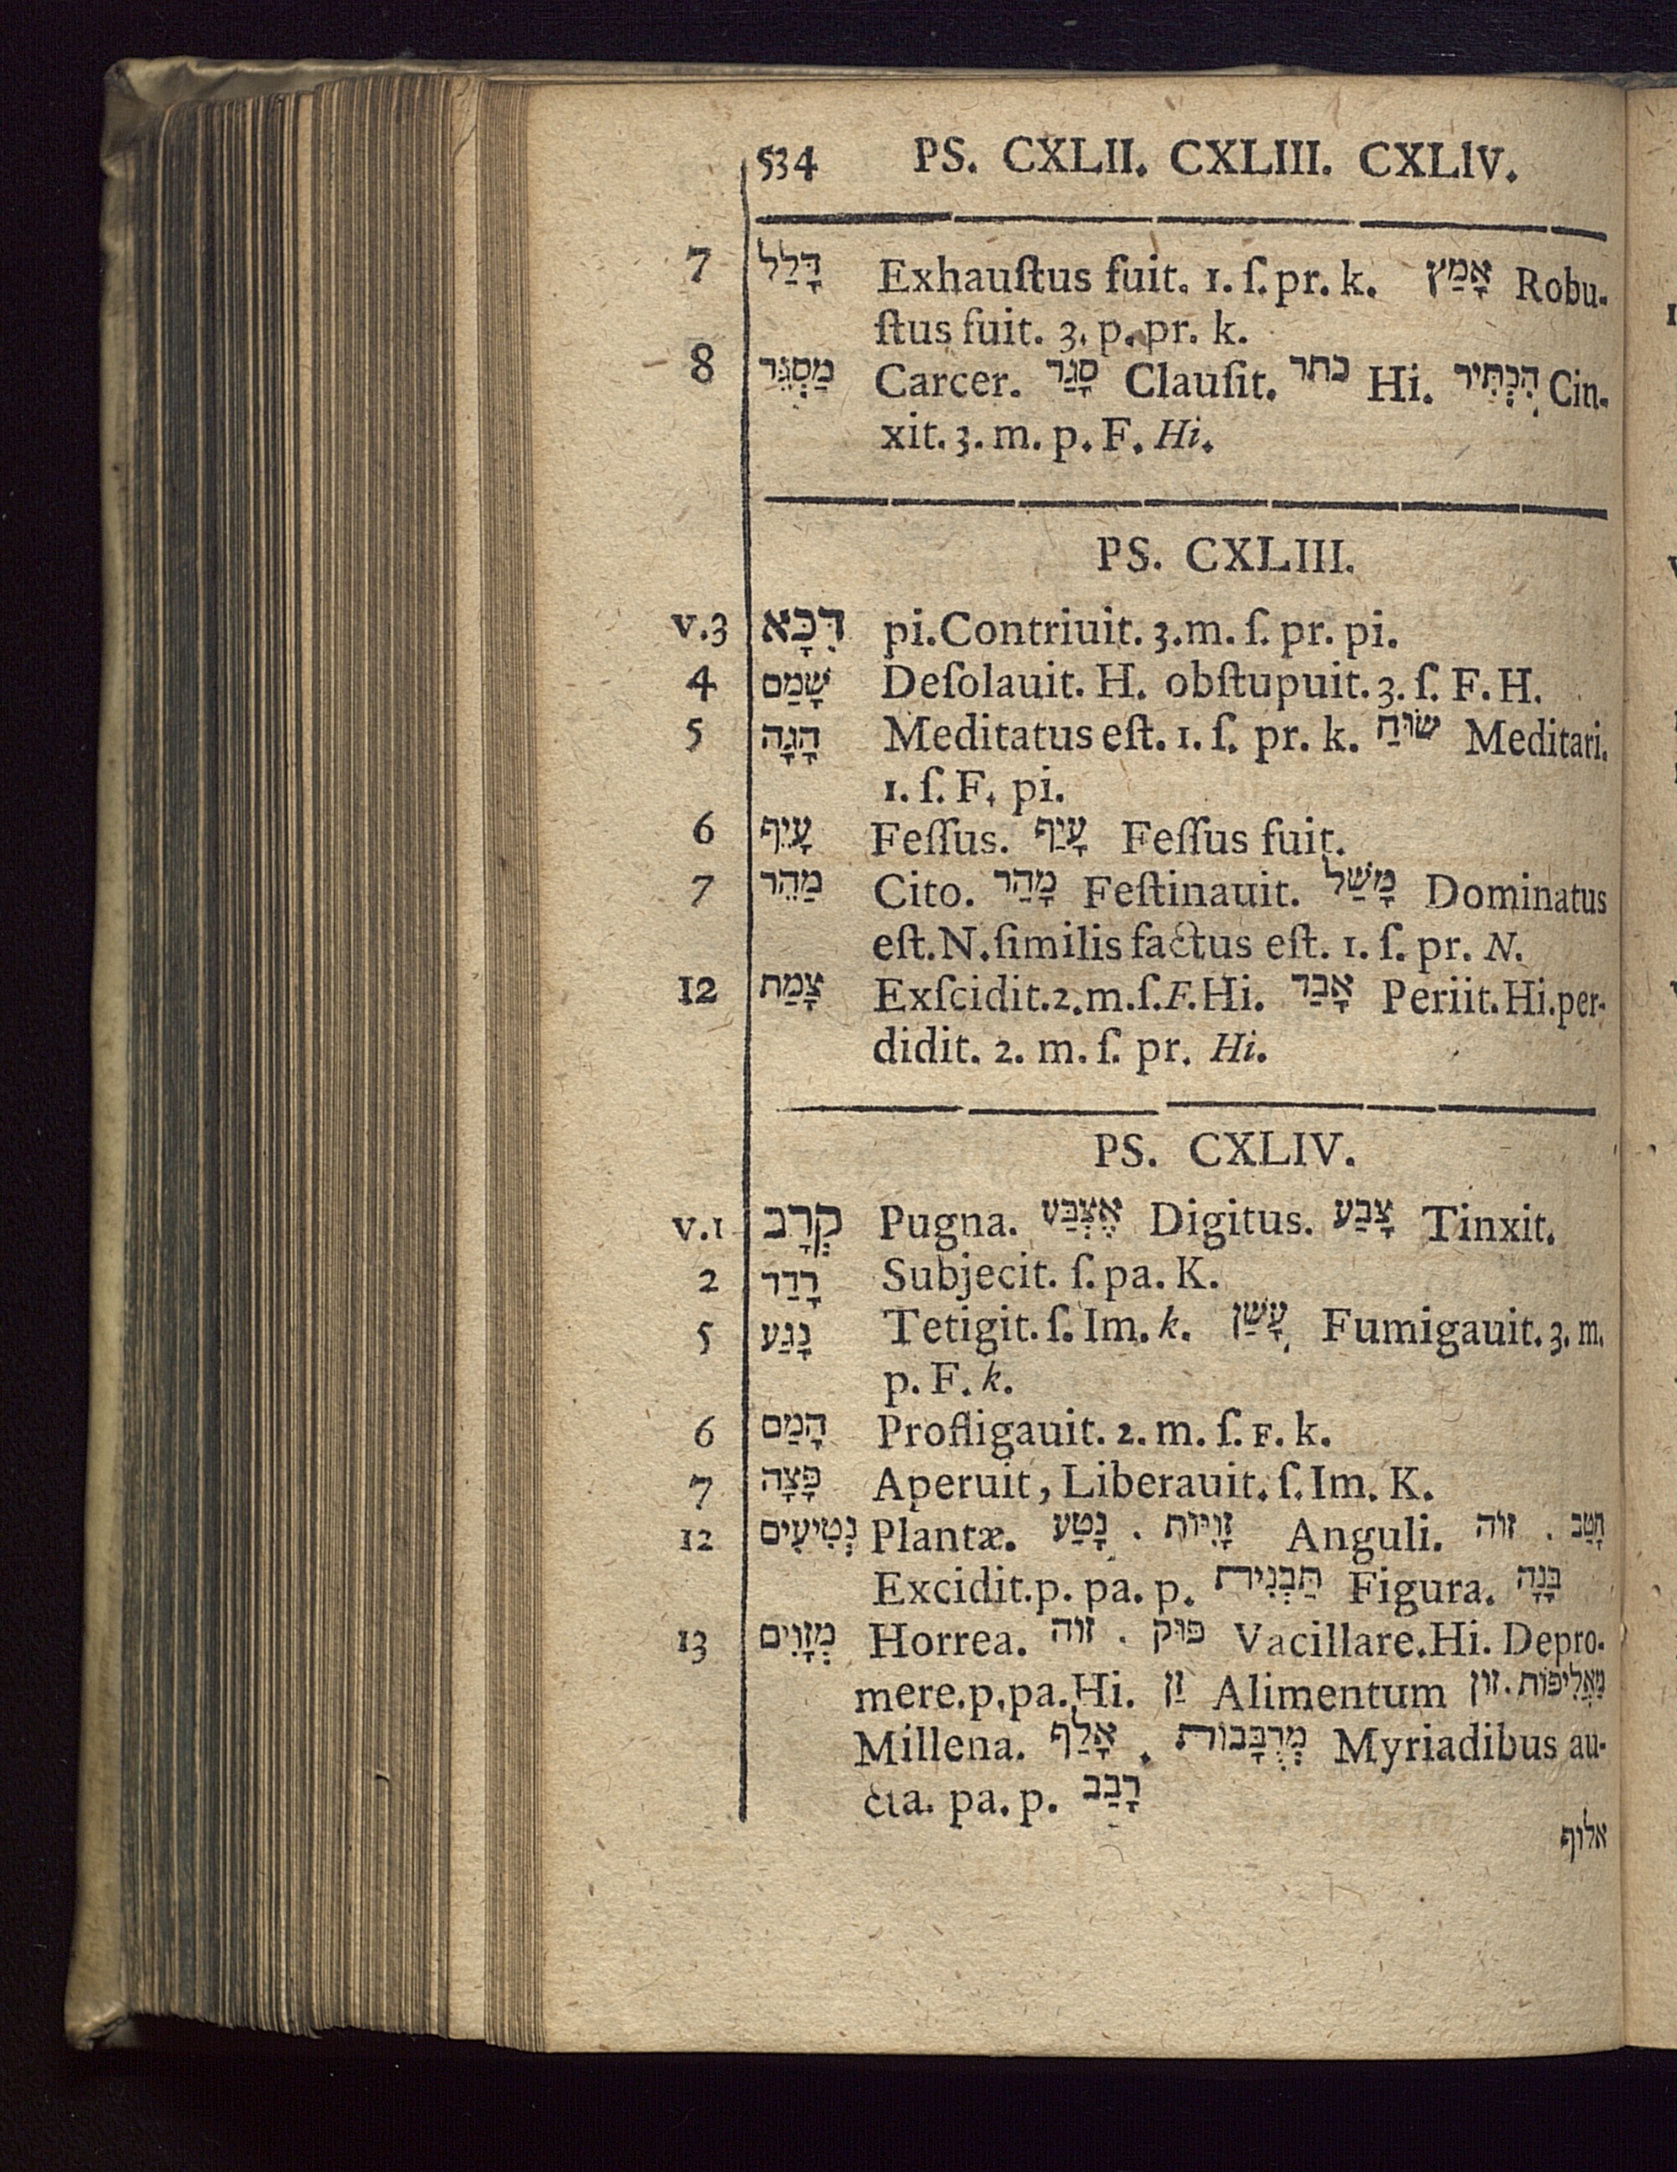 534 PS. CXLII. CXLIII. CXLIV.
7 דָּלַל Exhauſtus fuit. 1. ſ. pr. k. אָמַץ Robu-
ſtus fuit. 3. p. pr. k.
8 מַסְגֵּר Carcer. סָגַר Clauſit. כתר Hi. הִכְתִּיר Cin-
xit. 3. m. p. F. Hi.
PS. CXLIII.
v.3 דִּכָּא pi. Contriuit. 3. m. ſ. pr. pi.
4 שָׁמַם Deſolauit. H. obſtupuit. 3. ſ. F. H.
5 הָגָה Meditatus eſt. 1. ſ. pr. k. שׂוּחַ Meditari.
1. ſ. F. pi.
6 עָיֵף Feſſus. עָיַף Feſſus fuit.
7 מַהֵר Cito. מָהַר Feſtinauit. מָשַׁל Dominatus
eſt. N. ſimilis factus eſt. 1. ſ. pr. N.
12 צָמַת Exſcidit. 2. m. ſ. F. Hi. אָבַד Periit. Hi. per-
didit. 2. m. ſ. pr. Hi.
PS. CXLIV.
v.1 קְרָב Pugna. אֶצְבַּע Digitus. צָבַע Tinxit.
2 רָדַד Subjecit. ſ. pa. K.
5 נָגַע Tetigit. ſ. Im. k. עָשַׁן Fumigauit. 3. m.
p. F. k.
6 הָמַם Profligauit. 2. m. ſ. F. k.
7 פָּצָה Aperuit, Liberauit. ſ. Im. K.
12 נְטִיעִים Plantæ. נָטַע . זָוִיּוֹת Anguli. זוה . חָטַב
Excidit. p. pa. p. תַּבְנִית Figura. בָּנָה
13 מְזָוִים Horrea. זוה . פּוּק Vacillare. Hi. Depro-
mere. p. pa. Hi. זַן Alimentum זון . מַאֲלִיפוֹת
Millena. אָלַף . מְרֻבָּבוֹת Myriadibus au-
cta. pa. p. רָבַב
אלוף